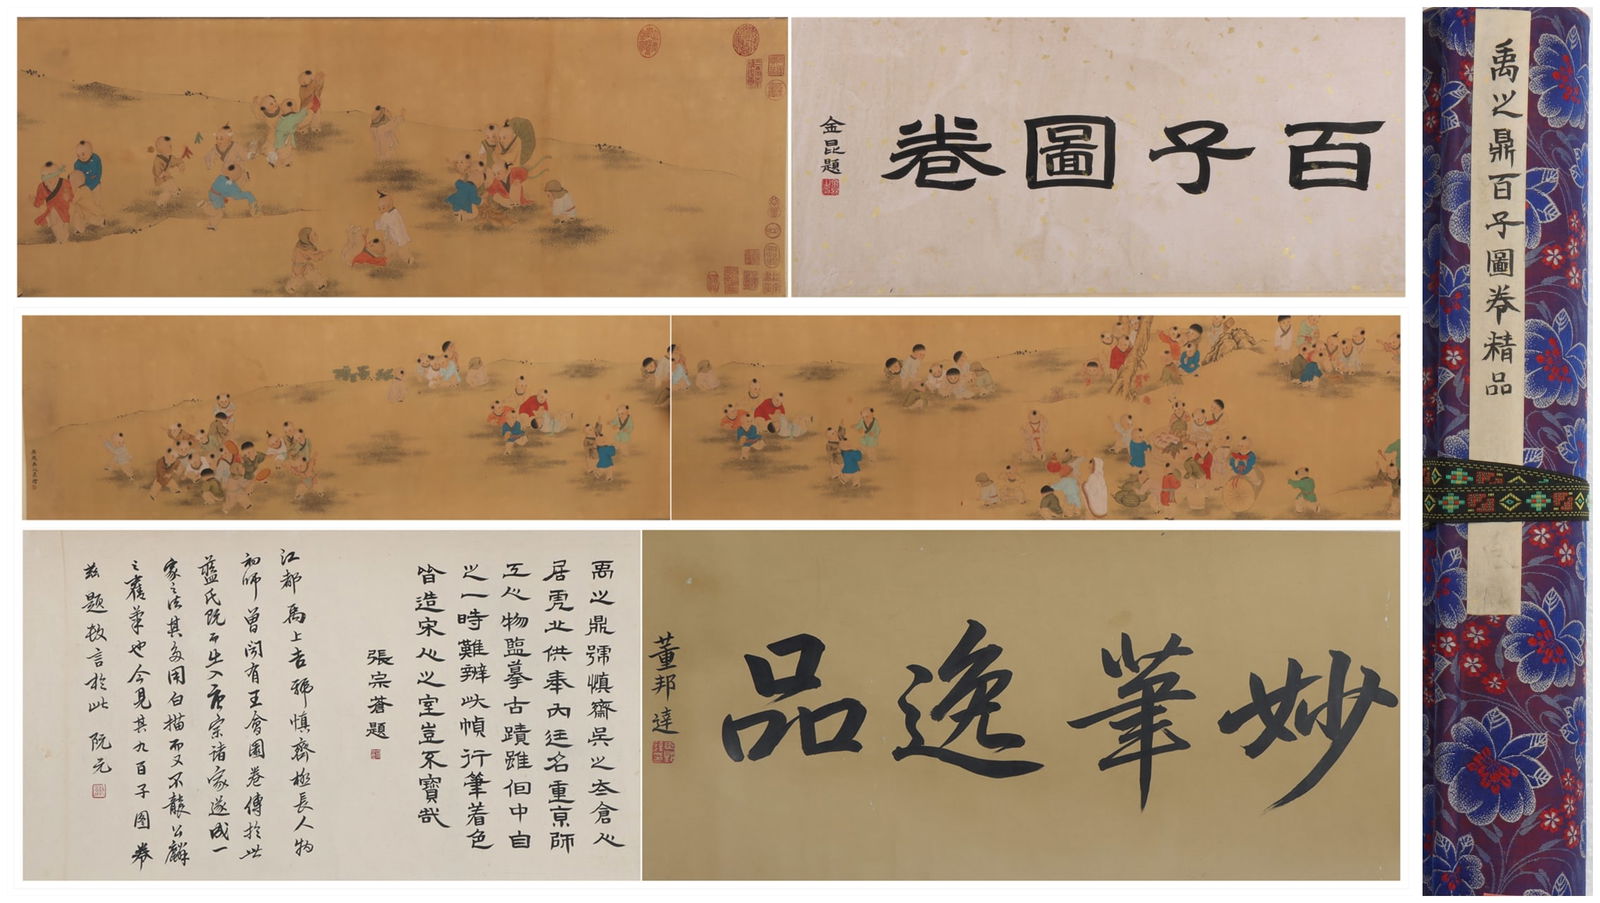 百子圖卷
金昆題
禹之鼎百子圖卷精品
妙筆逸品
董邦達
禹之鼎號慎齋吳之太倉人
居虎北供奉內廷名重京師
工人物臨摹古蹟雖個中自
之一時難辨此幀行筆着色
皆造宋人之室豈不寶哉
張宗蒼題
江都禹上吉號慎齋極長人物
初師
曾聞有王會圖卷傳於世
藍氏既而出入唐宗諸家遂成一
家之法其多用白描而又不襲公麟
之舊筆也今見其九百子图卷
茲題數言於此
阮元